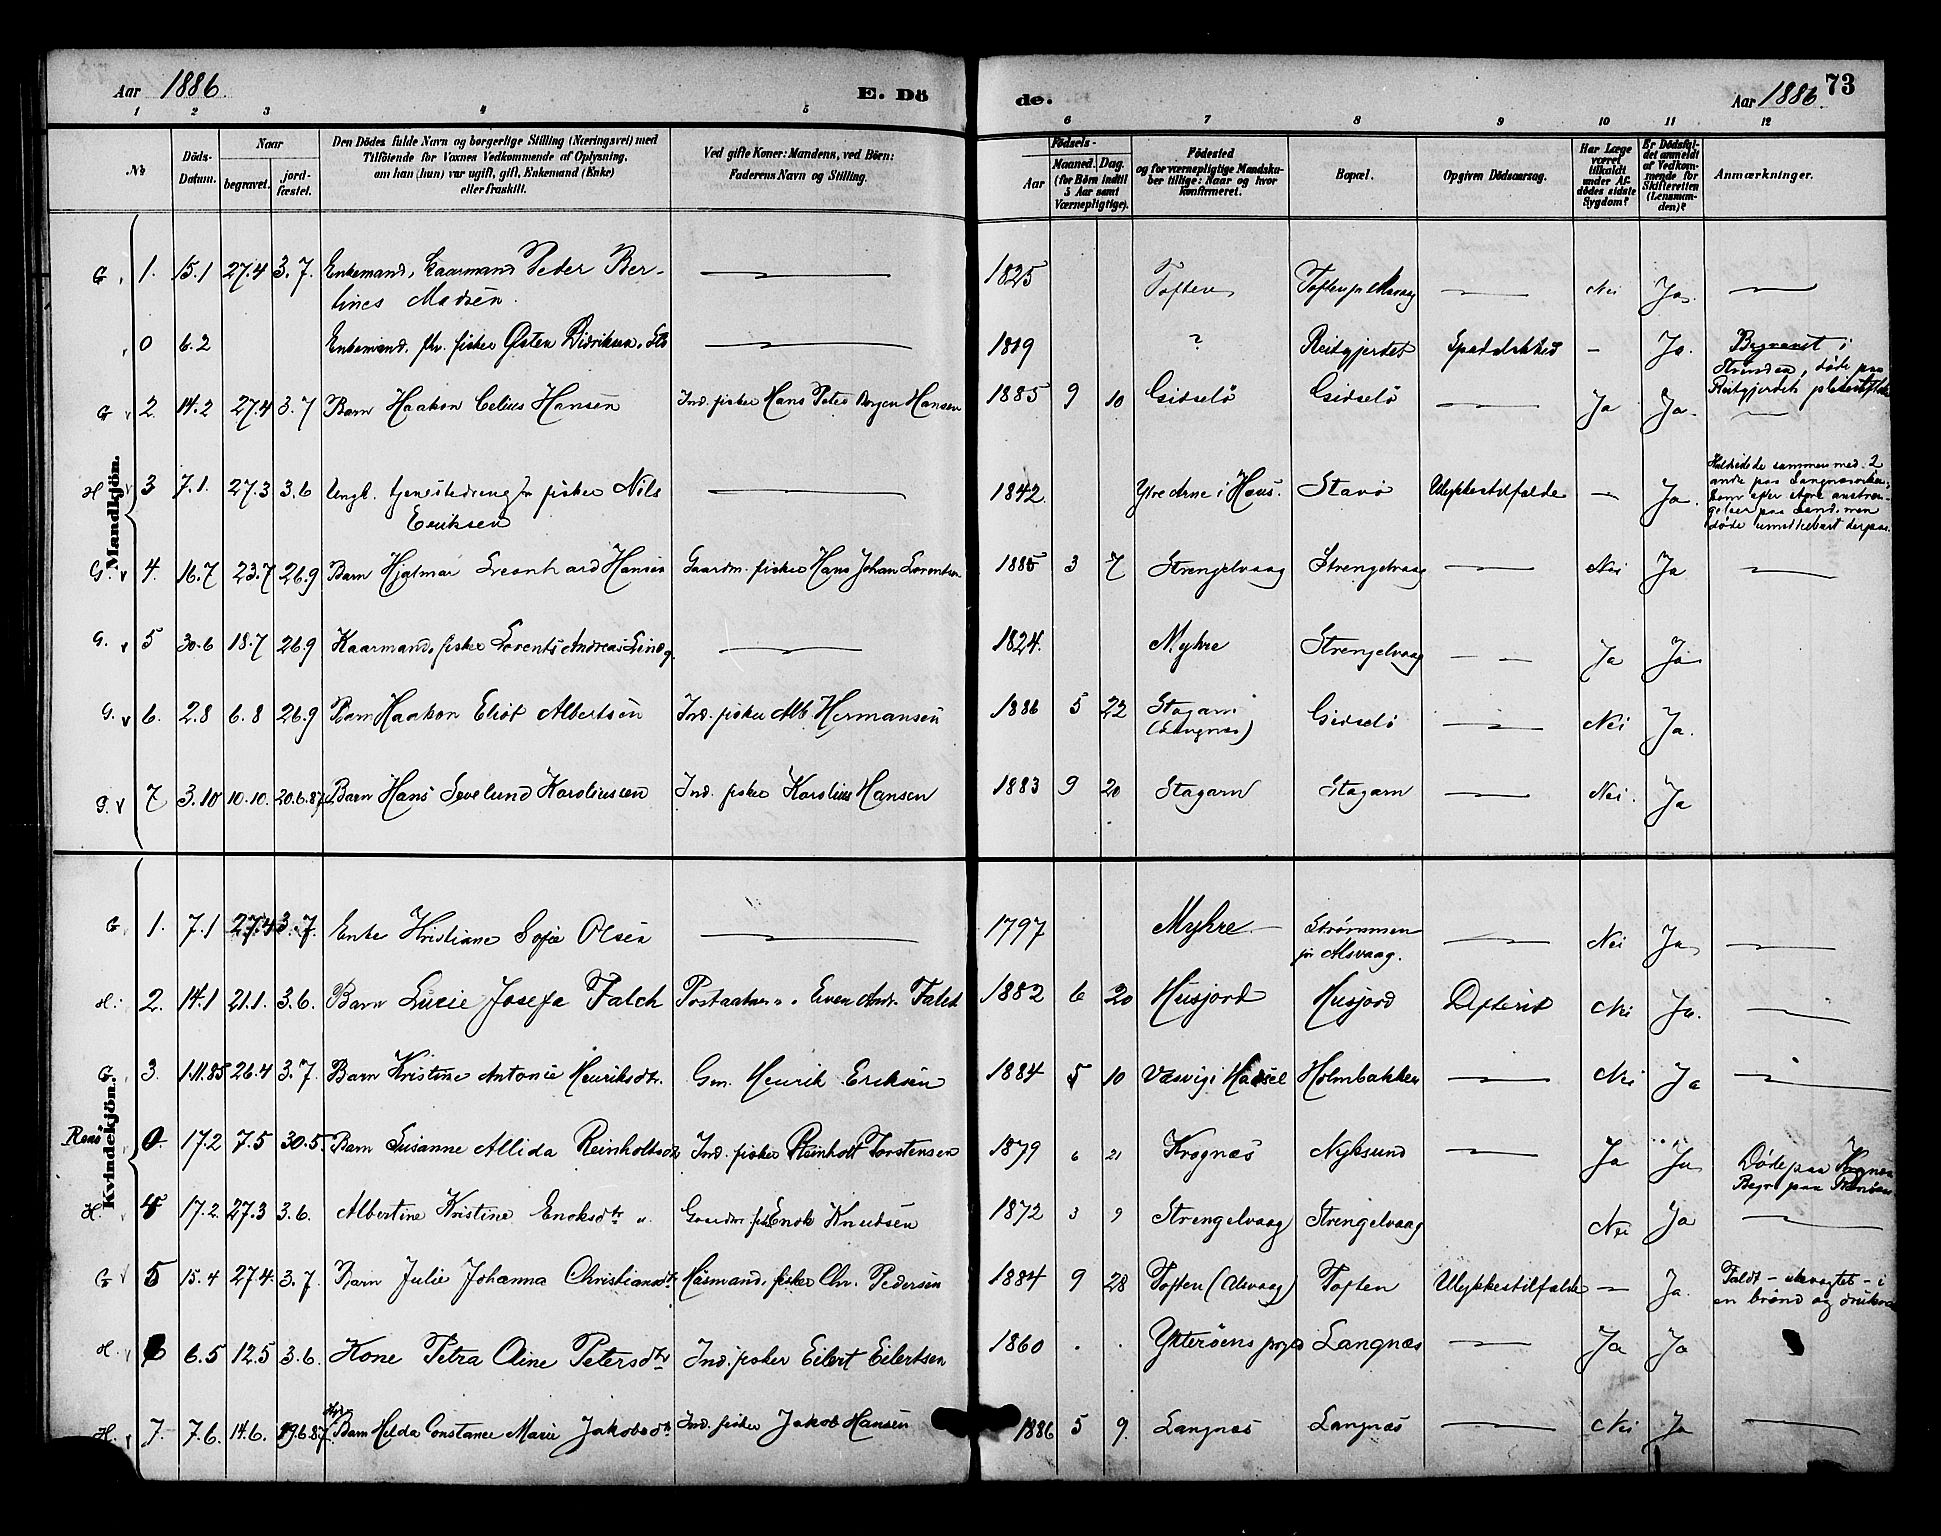 Aar 1886.
E. Dö
de.
Aar 1886.
73
1 2 3 4 5 6 7 8 9 10 11 12
No
Döds-Datum.
Naar
begravet.
jord-fæstet.
Den Dödes fulde Navn og borgerlige Stilling (Næringsvei) med
Tilföiende for Voxnes Vedkommende af Oplysning,
om han (hun) var ugift, gift, Enkemand (Enke)
eller fraskilt.
Ved gifte Koner: Mandens, ved Börn:
Faderens Navn og Stilling.
Födsels-
Aar
Maaned. Dag.
(for Börn indtil
5 Aar samt
Værnepligtige).
Födested
og for værnepligtige Mandska-
ber tillige: Naar og hvor
konfirmeret.
Bopæl.
Opgiven Dödsaarsag.
Har Læge
været
tilkaldt
under Af-
dödes sidste
Sygdom?
Er Dödsfal-
det anmeldt
af Vedkom-
mende for
Skifteretten
(Lensman-
den)?
Anmærkninger.
Mandkjön.
G. 1. 15.1 27.4 3.7. Enkemand, Kaarmand Peder Ber-
tines Madsen. 1825 Toften Toften Nei Ja.
0 6.2 Enkemand, fisker Østen Didriksen 1819 ? Reitgjerdet Spedalskhed - Ja. Begravet i
Strinden, døde paa
Reitgjerdet
G 2 14.2 27.4 3.7 Barn Haakon Celius Hansen Ind. fisker Hans Peter Hansen 1885 9 10 Gidselö Gidselö Ja Ja.
H 3 7.1. 27.3 3.6 Ungk. fisker Nils
Eriksen 1842 Ytre Arne i Haus. Stavö Ulykkestilfælde - Ja. sammen med 2
andre paa
kom efter store anstren-
gelser paa Land, men
døde umiddelbart derpaa.
G. 4. 16.7 23.7 26.9 Barn Hjalmar Leonhard Hansen Gaardm. fisker Hans Johan Lorentsen 1885 3 7 Strengelvaag Strengelvaag Nei Ja
G. 5 30.6 18.7 26.9 Kaarmand, fisker Lorents Andreas 1824. Myhre Strengelvaag Ja Ja
G. 6. 2.8 6.8 26.9 Barn Haakon Eliot Albertsen Ind. fisker Alb. Hermansen 1886 5 22 Stagarn
(Langnes) Gidselö Nei Ja.
G. 7 3.10 10.10. 20.6.87 Barn Hans Sevelund Karoliussen Ind. fisker Karolius Hansen 1883 9 20 Stagarn Stagarn Nei. Ja
Kvindekjön.
G. 1. 7.1 27.4 3.7. Enke Kristiane Sofie Olsen 1797 Myhre Strømmen
pr Alsvaag. Nei Ja
H. 2. 14.1 21.1. 3.6. Barn Lucie Josefa Falch Even Andr. Falch 1882 6 20 Husjord Husjord Difterit Nei Ja.
G. 3. 1.11.85 26.4 3.7. Barn Kristine Antonie Henriksdtr. Gm. Henrik Eriksen 1884 5 10 Hadsel Holmbakken Nei Ja
0. 17.2 7.5 30.5. Barn Susanne Allida Reinholtsdtr Ind. fisker Reinholt Torstensen 1879 6 21 Krognæs Nyksund Ja Ja Døde paa Krognæs
Begr. paa
H. 4 17.2. 27.3 3.6. Albertine Kristine Enoksdtr Gaardm. Enok Knudsen 1872 3 9 Strengelvaag Strengelvaag Nei Ja
G 5 15.4 27.4. 3.7. Barn Julie Johanna Christiansdtr Husmand, fisker Chr. Pedersen 1884 9 28 Toften (Alsvaag) Toften Ulykkestilfælde - Ja. Faldt - uvagtet - i
en brönd og
H. 6 6.5 12.5 3.6. Kone Petra Oline Petersdtr Ind. fisker Eilert Eilertsen 1860 . . Ytterøens Langnæs Ja Ja
H. 7. 7.6. 14.6. 19.6.87. Barn Helda Constance Marie Jakobsdtr Ind. fisker Jakob Hansen 1886 5 9. Langnæs Langnæs Nei Ja